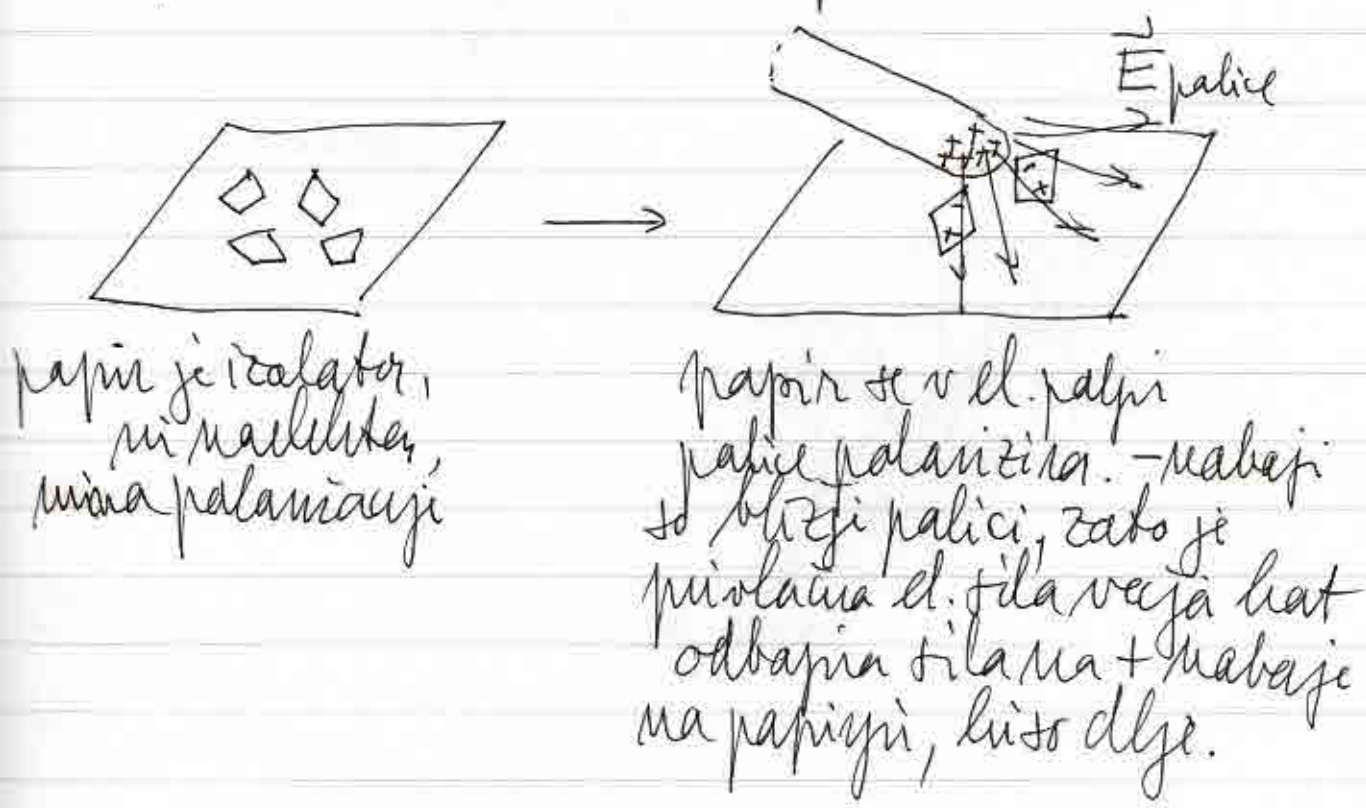 E palice
papir je izolator,
ni naelektren,
nima polarizacije
papir se v el. polju
palice polarizira. - naboji
so bližji palici, zato je
privlačna el. sila večja kot
odbojna sila na + naboje
na papirju, ki so dlje.